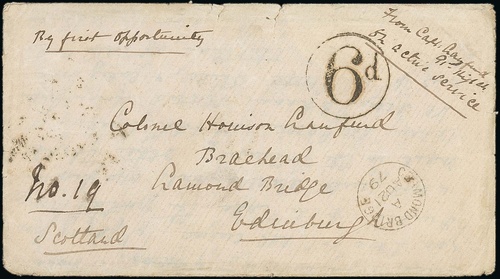 By first opportunity
From Capt. Craufurd
91st High
On active service
6d
Colonel Houison Craufurd
Braehead
Cramond Bridge
Edinburgh
No. 19
Scotland
CRAMOND BRIDGE
A
AU 2
79